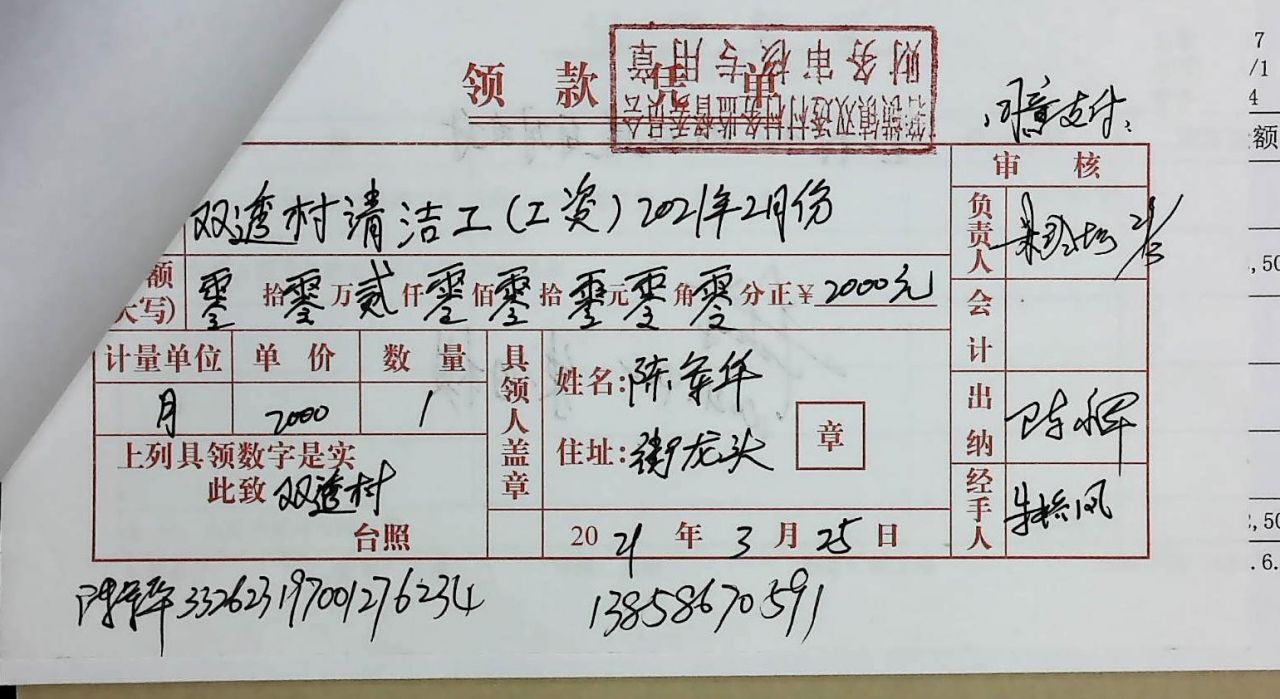 领款凭单
财务审核专用章
箬横镇双透村村务监督委员会
同意支付
审核
双透村清洁工(工资)2021年2月份
负责人
额
大写)
零拾零万贰仟零佰零拾零元零角零分正¥2000元
会计
计量单位 单价 数量
月 2000 1
具领人盖章
姓名:陈华
住址:街龙头
章
出纳
陈辉
上列具领数字是实
此致 双透村
台照
经手人
朱凤
2021年3月25日
332623197001276234
13858670591
7
/1
4
额
,50
,50
.6.